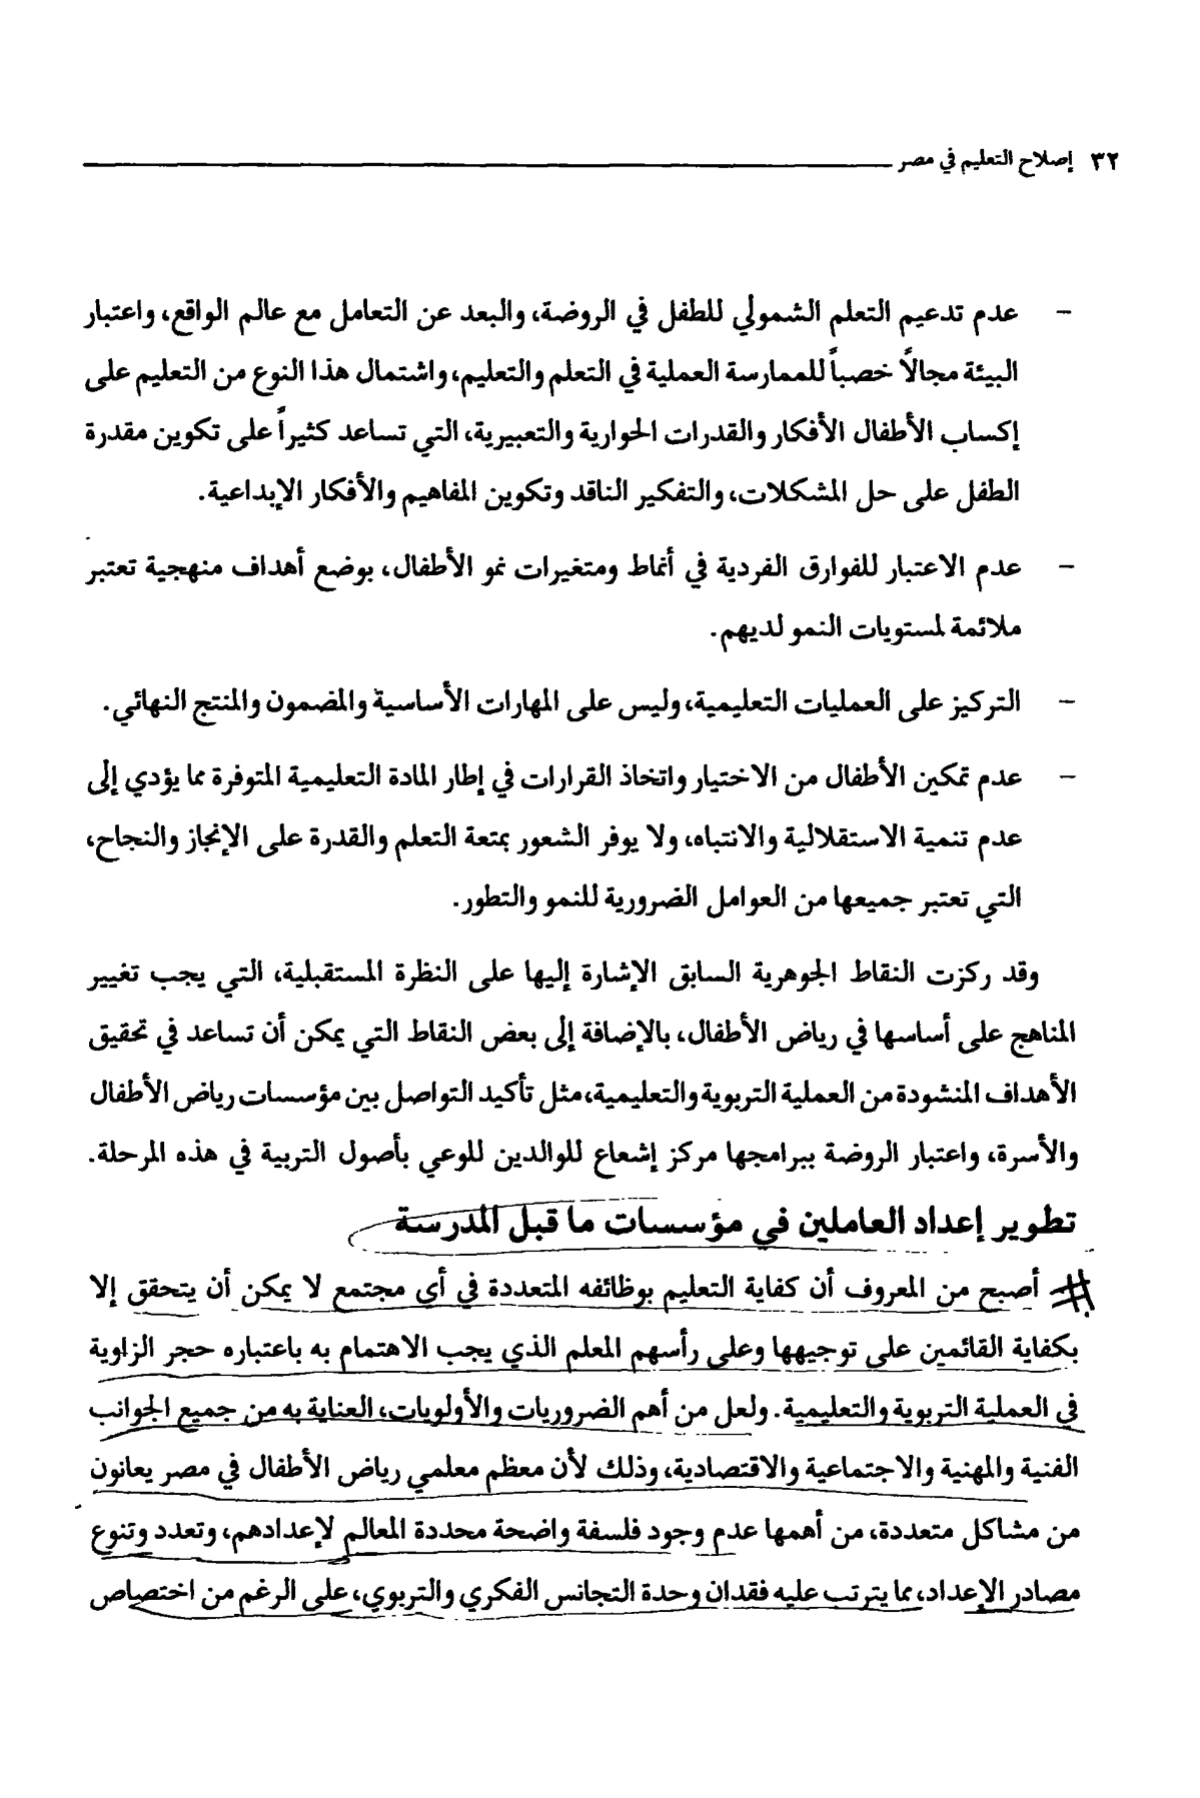 ٣٢ إصلاح التعليم في مصر
- عدم تدعيم التعلم الشمولي للطفل في الروضة، والبعد عن التعامل مع عالم الواقع، واعتبار
البيئة مجالاً خصباً للممارسة العملية في التعلم والتعليم، واشتمال هذا النوع من التعليم على
إكساب الأطفال الأفكار والقدرات الحوارية والتعبيرية، التي تساعد كثيراً على تكوين مقدرة
الطفل على حل المشكلات، والتفكير الناقد وتكوين المفاهيم والأفكار الإبداعية.
- عدم الاعتبار للفوارق الفردية في أنماط ومتغيرات نمو الأطفال، بوضع أهداف منهجية تعتبر
ملائمة لمستويات النمو لديهم.
- التركيز على العمليات التعليمية، وليس على المهارات الأساسية والمضمون والمنتج النهائي.
- عدم تمكين الأطفال من الاختيار واتخاذ القرارات في إطار المادة التعليمية المتوفرة مما يؤدي إلى
عدم تنمية الاستقلالية والانتباه، ولا يوفر الشعور بمتعة التعلم والقدرة على الإنجاز والنجاح،
التي تعتبر جميعها من العوامل الضرورية للنمو والتطور.
وقد ركزت النقاط الجوهرية السابق الإشارة إليها على النظرة المستقبلية، التي يجب تغيير
المناهج على أساسها في رياض الأطفال، بالإضافة إلى بعض النقاط التي يمكن أن تساعد في تحقيق
الأهداف المنشودة من العملية التربوية والتعليمية، مثل تأكيد التواصل بين مؤسسات رياض الأطفال
والأسرة، واعتبار الروضة ببرامجها مركز إشعاع للوالدين للوعي بأصول التربية في هذه المرحلة.
تطوير إعداد العاملين في مؤسسات ما قبل المدرسة
أصبح من المعروف أن كفاية التعليم بوظائفه المتعددة في أي مجتمع لا يمكن أن يتحقق إلا
بكفاية القائمين على توجيهها وعلى رأسهم المعلم الذي يجب الاهتمام به باعتباره حجر الزاوية
في العملية التربوية والتعليمية. ولعل من أهم الضروريات والأولويات، العناية به من جميع الجوانب
الفنية والمهنية والاجتماعية والاقتصادية، وذلك لأن معظم معلمي رياض الأطفال في مصر يعانون
من مشاكل متعددة، من أهمها عدم وجود فلسفة واضحة محددة المعالم لإعدادهم، وتعدد وتنوع
مصادر الإعداد، مما يترتب عليه فقدان وحدة التجانس الفكري والتربوي، على الرغم من اختصاص